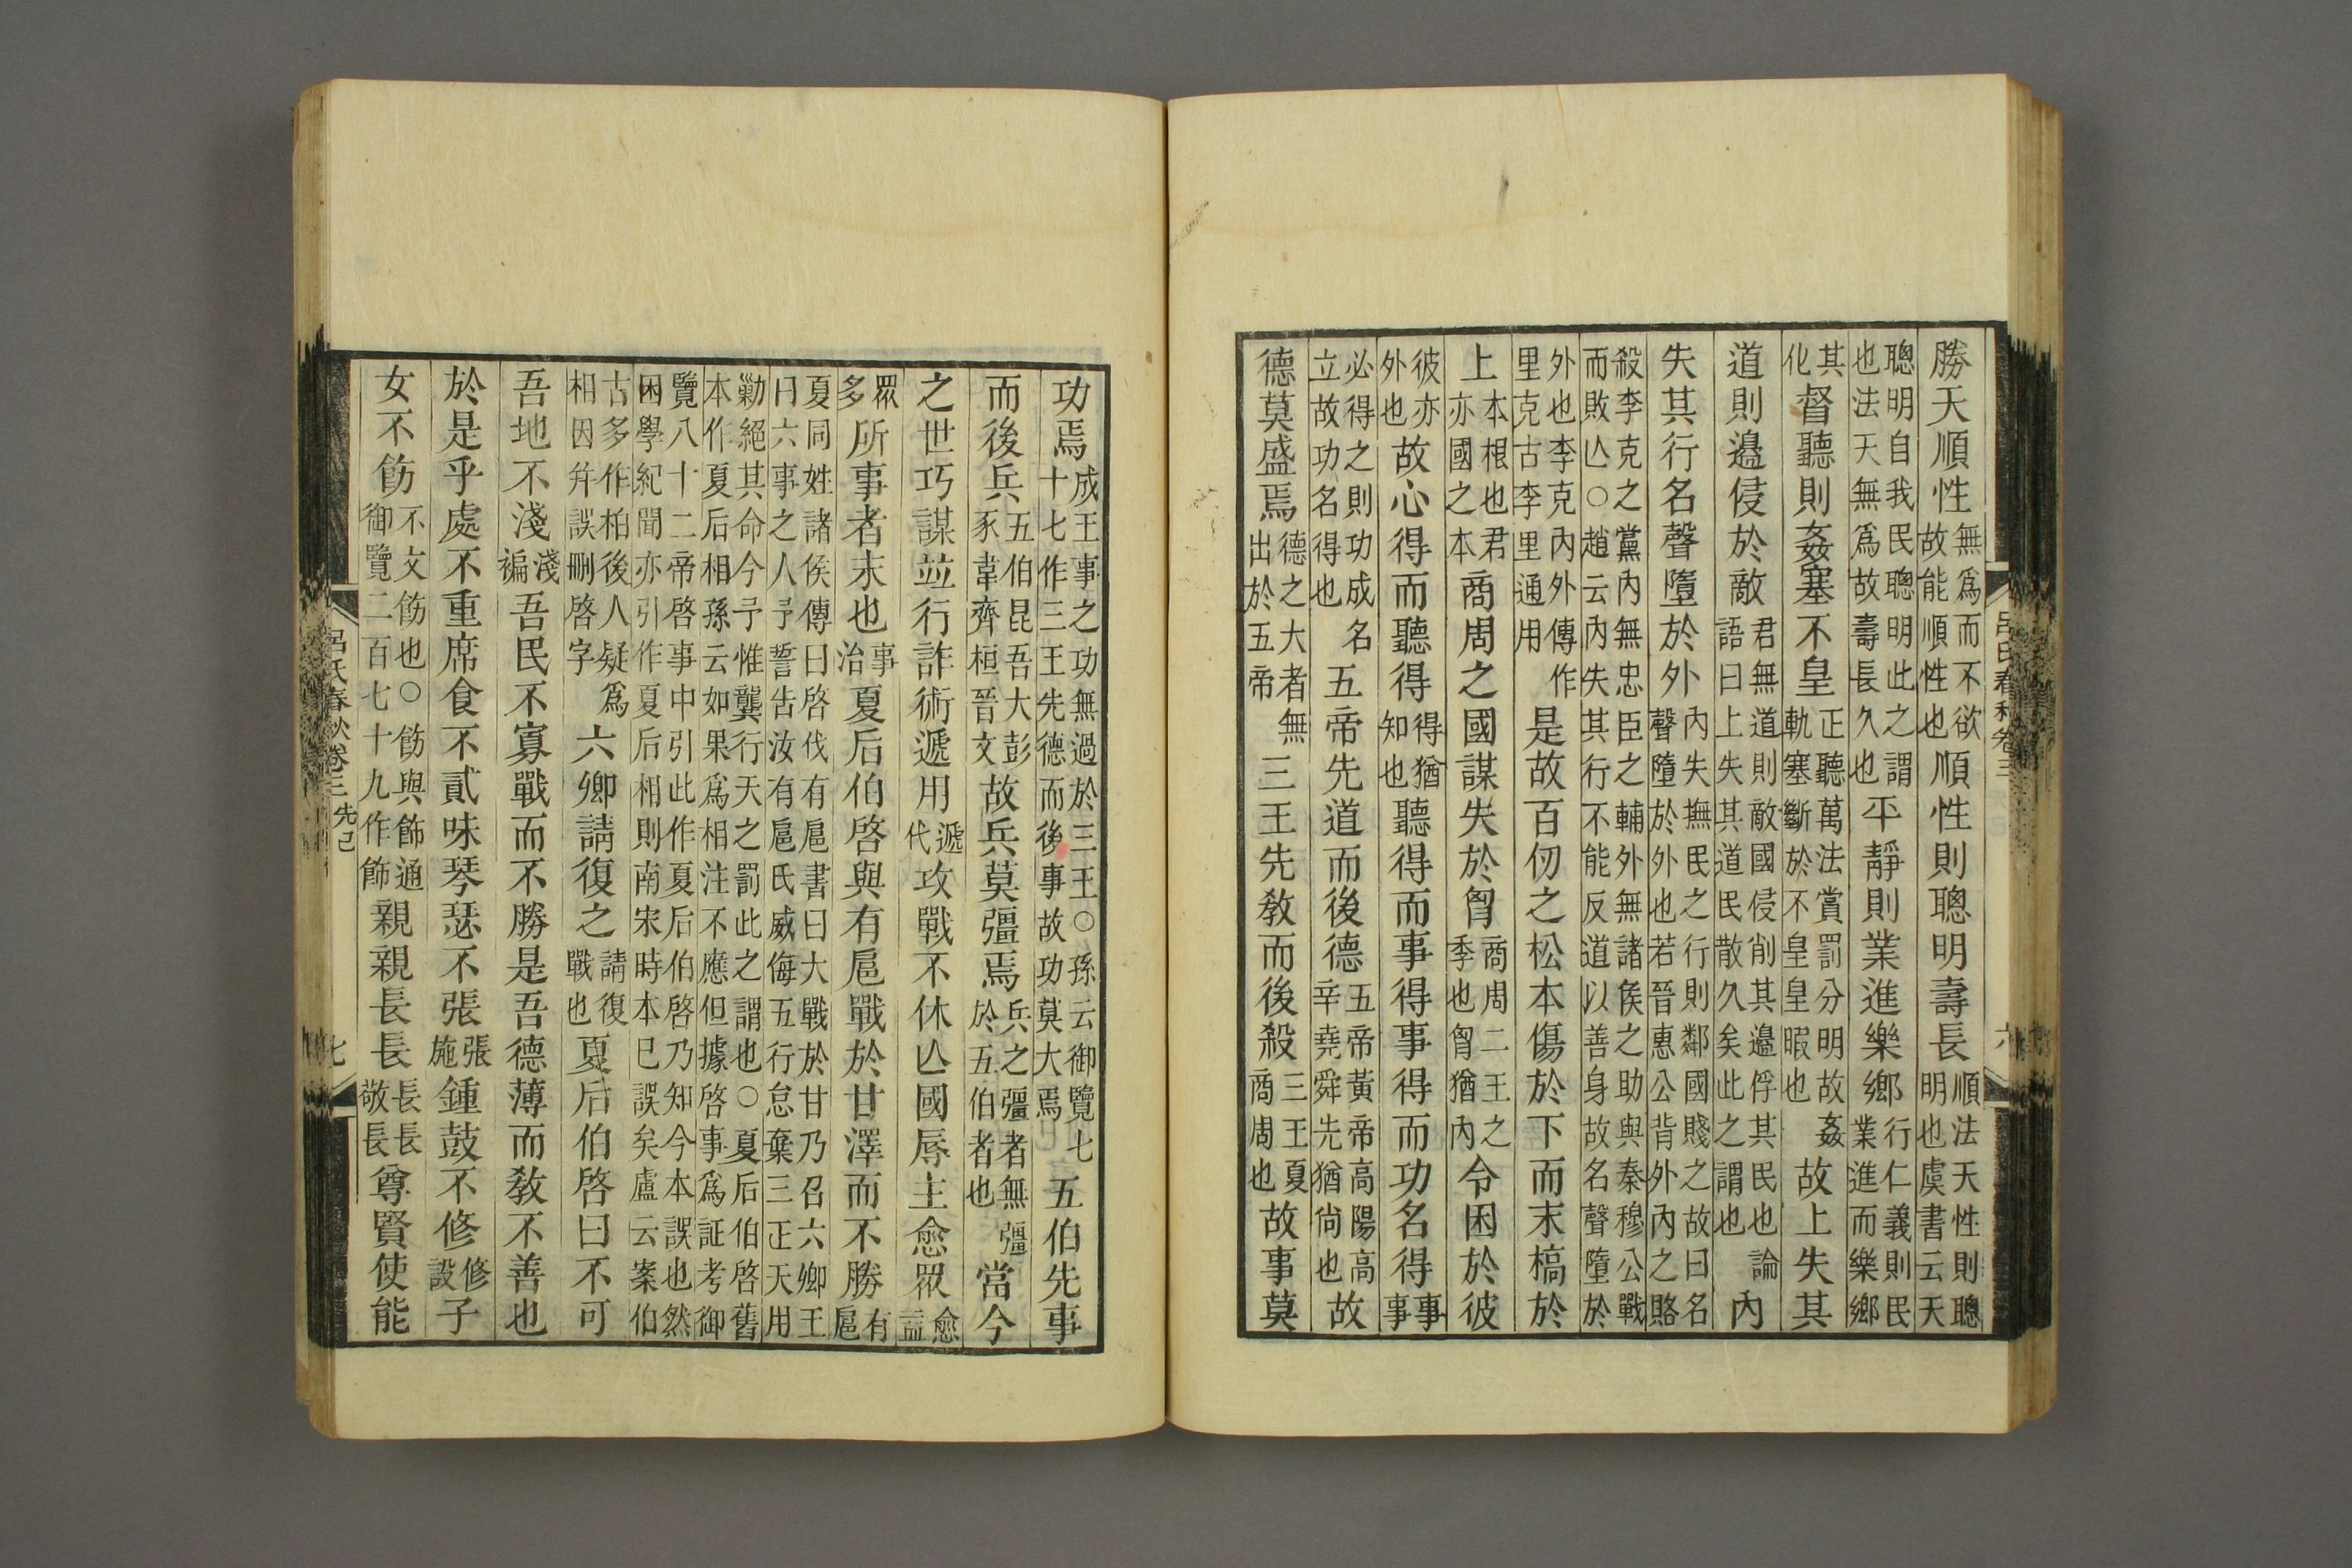 勝天順性無爲而不欲故能順性也順性則聰明壽長順法天性則聰明也虞書云天
聰明自我民聰明此之謂也法天無爲故壽長久也平靜則業進樂鄉行仁義則民業進而樂鄉
其化督聽則姦塞不皇正聽萬法賞罰分明故姦軌塞斷於不皇皇暇也故上失其
道則邊侵於敵君無道則敵國侵削其邊俘其民也論語曰上失其道民散久矣此之謂也內
失其行名聲墮於外內失撫民之行則鄰國賤之故曰名聲墮於外也若晉惠公背外內之賂
殺李克之黨內無忠臣之輔外無諸侯之助與秦穆公戰而敗亾○趙云內失其行不能反道以善身故名聲墮於
外也李克內外傳作里克古李里通用是故百仞之松本傷於下而末槁於
上本根也君亦國之本商周之國謀失於胷商周二王之季也胷猶內令困於彼
彼亦外也故心得而聽得得猶知也聽得而事得事得而功名得事事
必得之則功成名立故功名得也五帝先道而後德五帝黃帝高陽高辛堯舜先猶尚也故
德莫盛焉德之大者無出於五帝三王先敎而後殺三王夏商周也故事莫
呂氏春秋卷三
六
功焉成王事之功無過於三王○孫云御覽七十七作三王先德而後事故功莫大焉五伯先事
而後兵五伯昆吾大彭豕韋齊桓晉文故兵莫彊焉兵之彊者無彊於五伯者也當今
之世巧謀竝行詐術遞用遞代攻戰不休亾國辱主愈眾愈益
眾多所事者末也事治夏后伯啓與有扈戰於甘澤而不勝有扈
夏同姓諸侯傳曰啓伐有扈書曰大戰於甘乃召六卿王曰六事之人予誓告汝有扈氏威侮五行怠棄三正天用
勦絕其命今予惟龔行天之罰此之謂也○夏后伯啓舊本作夏后相孫云如果爲相注不應但據啓事爲証考御
覽八十二帝啓事中引此作夏后伯啓乃知今本誤也然困學紀聞亦引作夏后相則南宋時本已誤矣盧云案伯
古多作柏後人疑爲相因幷誤刪啓字六卿請復之請復戰也夏后伯啓曰不可
吾地不淺淺褊吾民不寡戰而不勝是吾德薄而敎不善也
於是乎處不重席食不貳味琴瑟不張張施鍾鼓不修修設子
女不飭不文飭也○飭與飾通御覽二百七十九作飾親親長長長長敬長尊賢使能
呂氏春秋卷三 先己
七